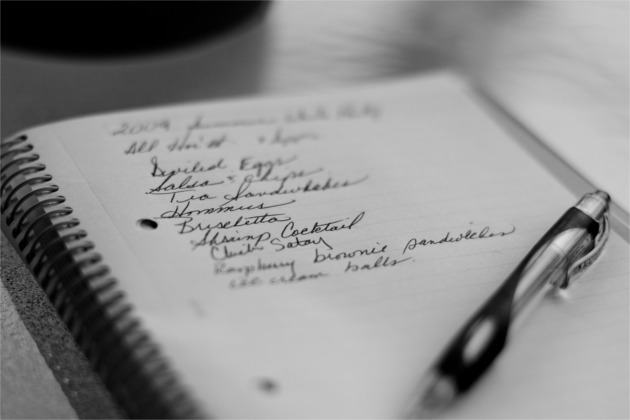 2009 Summer White Party
All Hors
Deviled Eggs
Salsa & Chips
Tea Sandwiches
Hommus
Bruschetta
Shrimp Cocktail
Satay
Raspberry brownie sandwiches
ice cream balls.